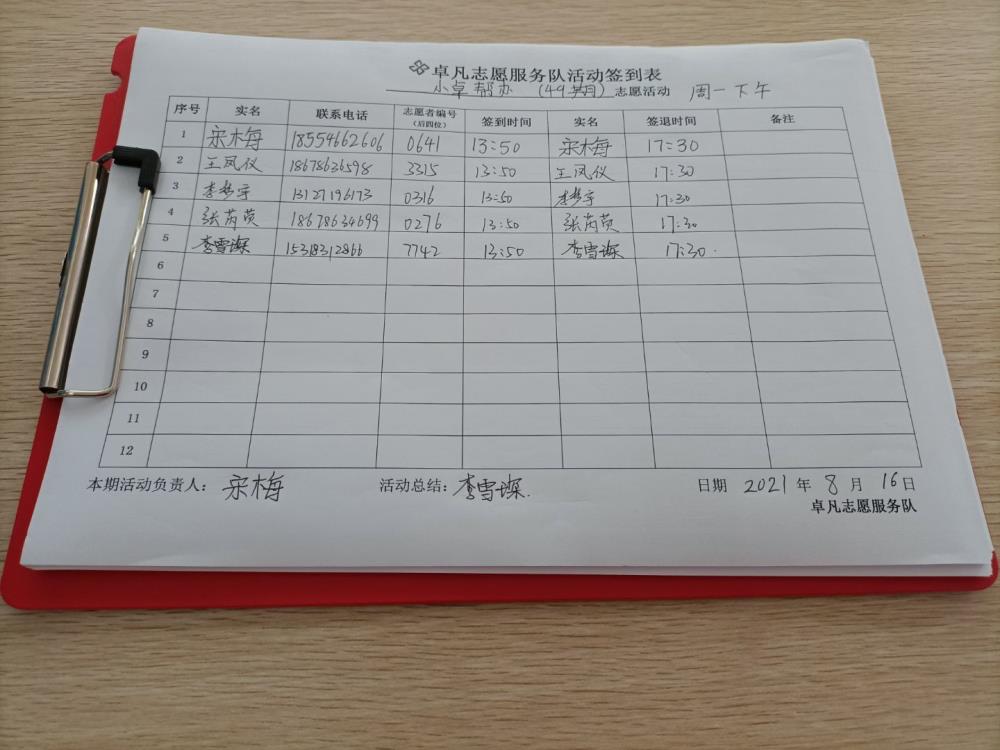 卓凡志愿服务队活动签到表
小卓帮办 (49期) 志愿活动 周一下午
序号 实名 联系电话 志愿者编号(后四位) 签到时间 实名 签退时间 备注
1 宋木梅 18554662606 0641 13:50 宋木梅 17:30
2 王凤仪 18678636598 3315 13:50 王凤仪 17:30
3 李梦宇 13127196173 0316 13:50 李梦宇 17:30
4 张芮萁 18678634699 0276 13:50 张芮萁 17:30
5 李雪 15318312866 7742 13:50 李雪 17:30
6
7
8
9
10
11
12
本期活动负责人: 宋木梅 活动总结: 李雪 日期 2021 年 8 月 16 日
卓凡志愿服务队